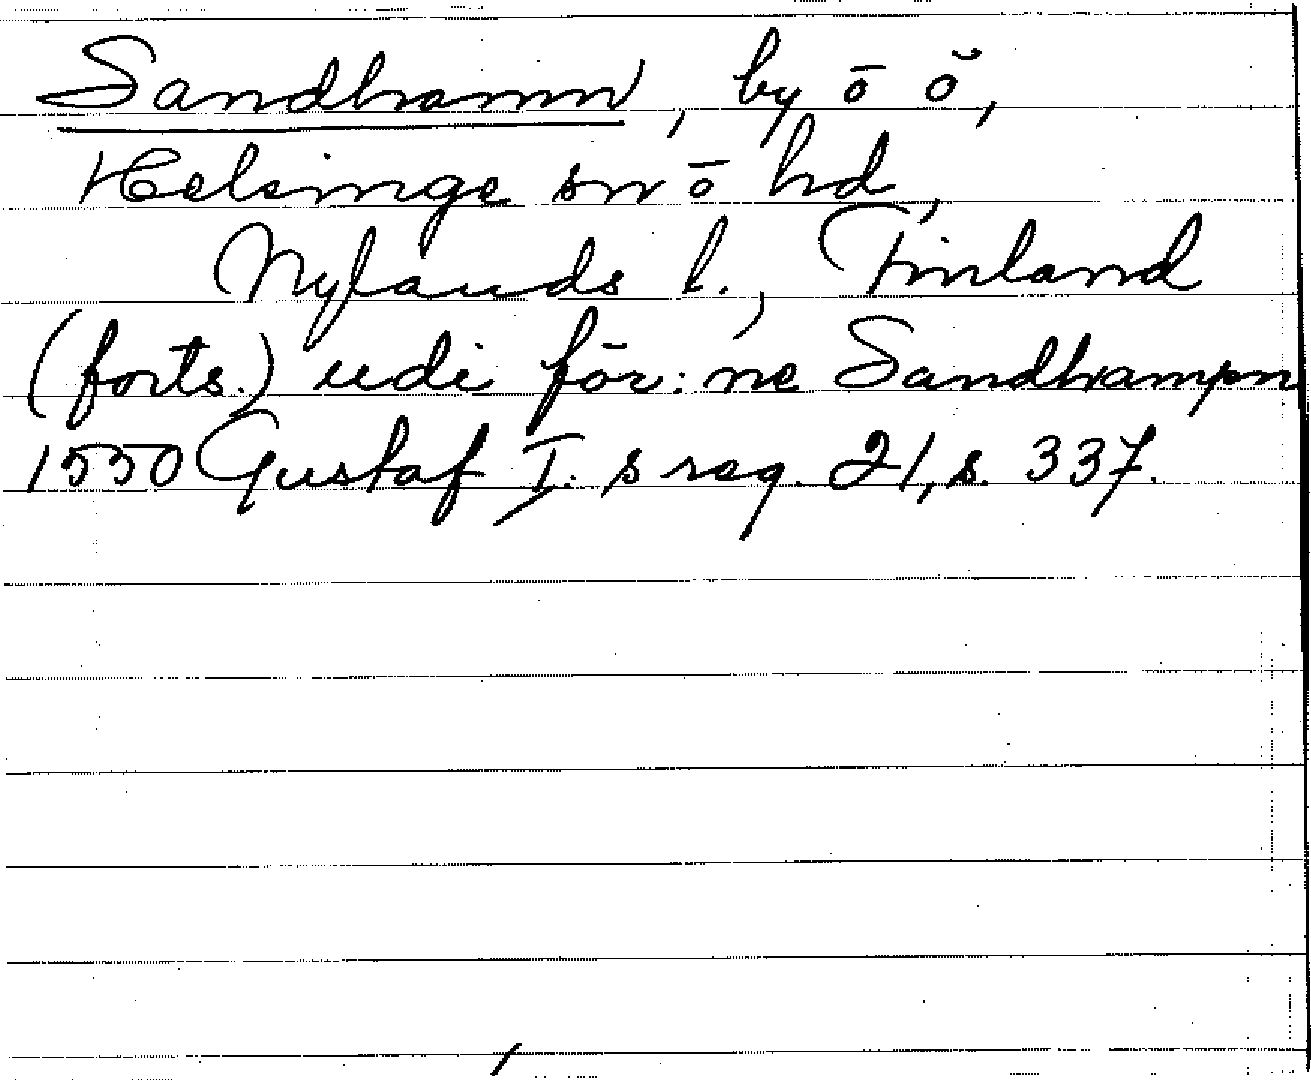 Sandhamn, by o ö,
Helsinge sn o hd,
Nylands l., Finland
(forts.) udi för:ne Sandhampn
1550 Gustaf I:s reg. 21, s. 337.